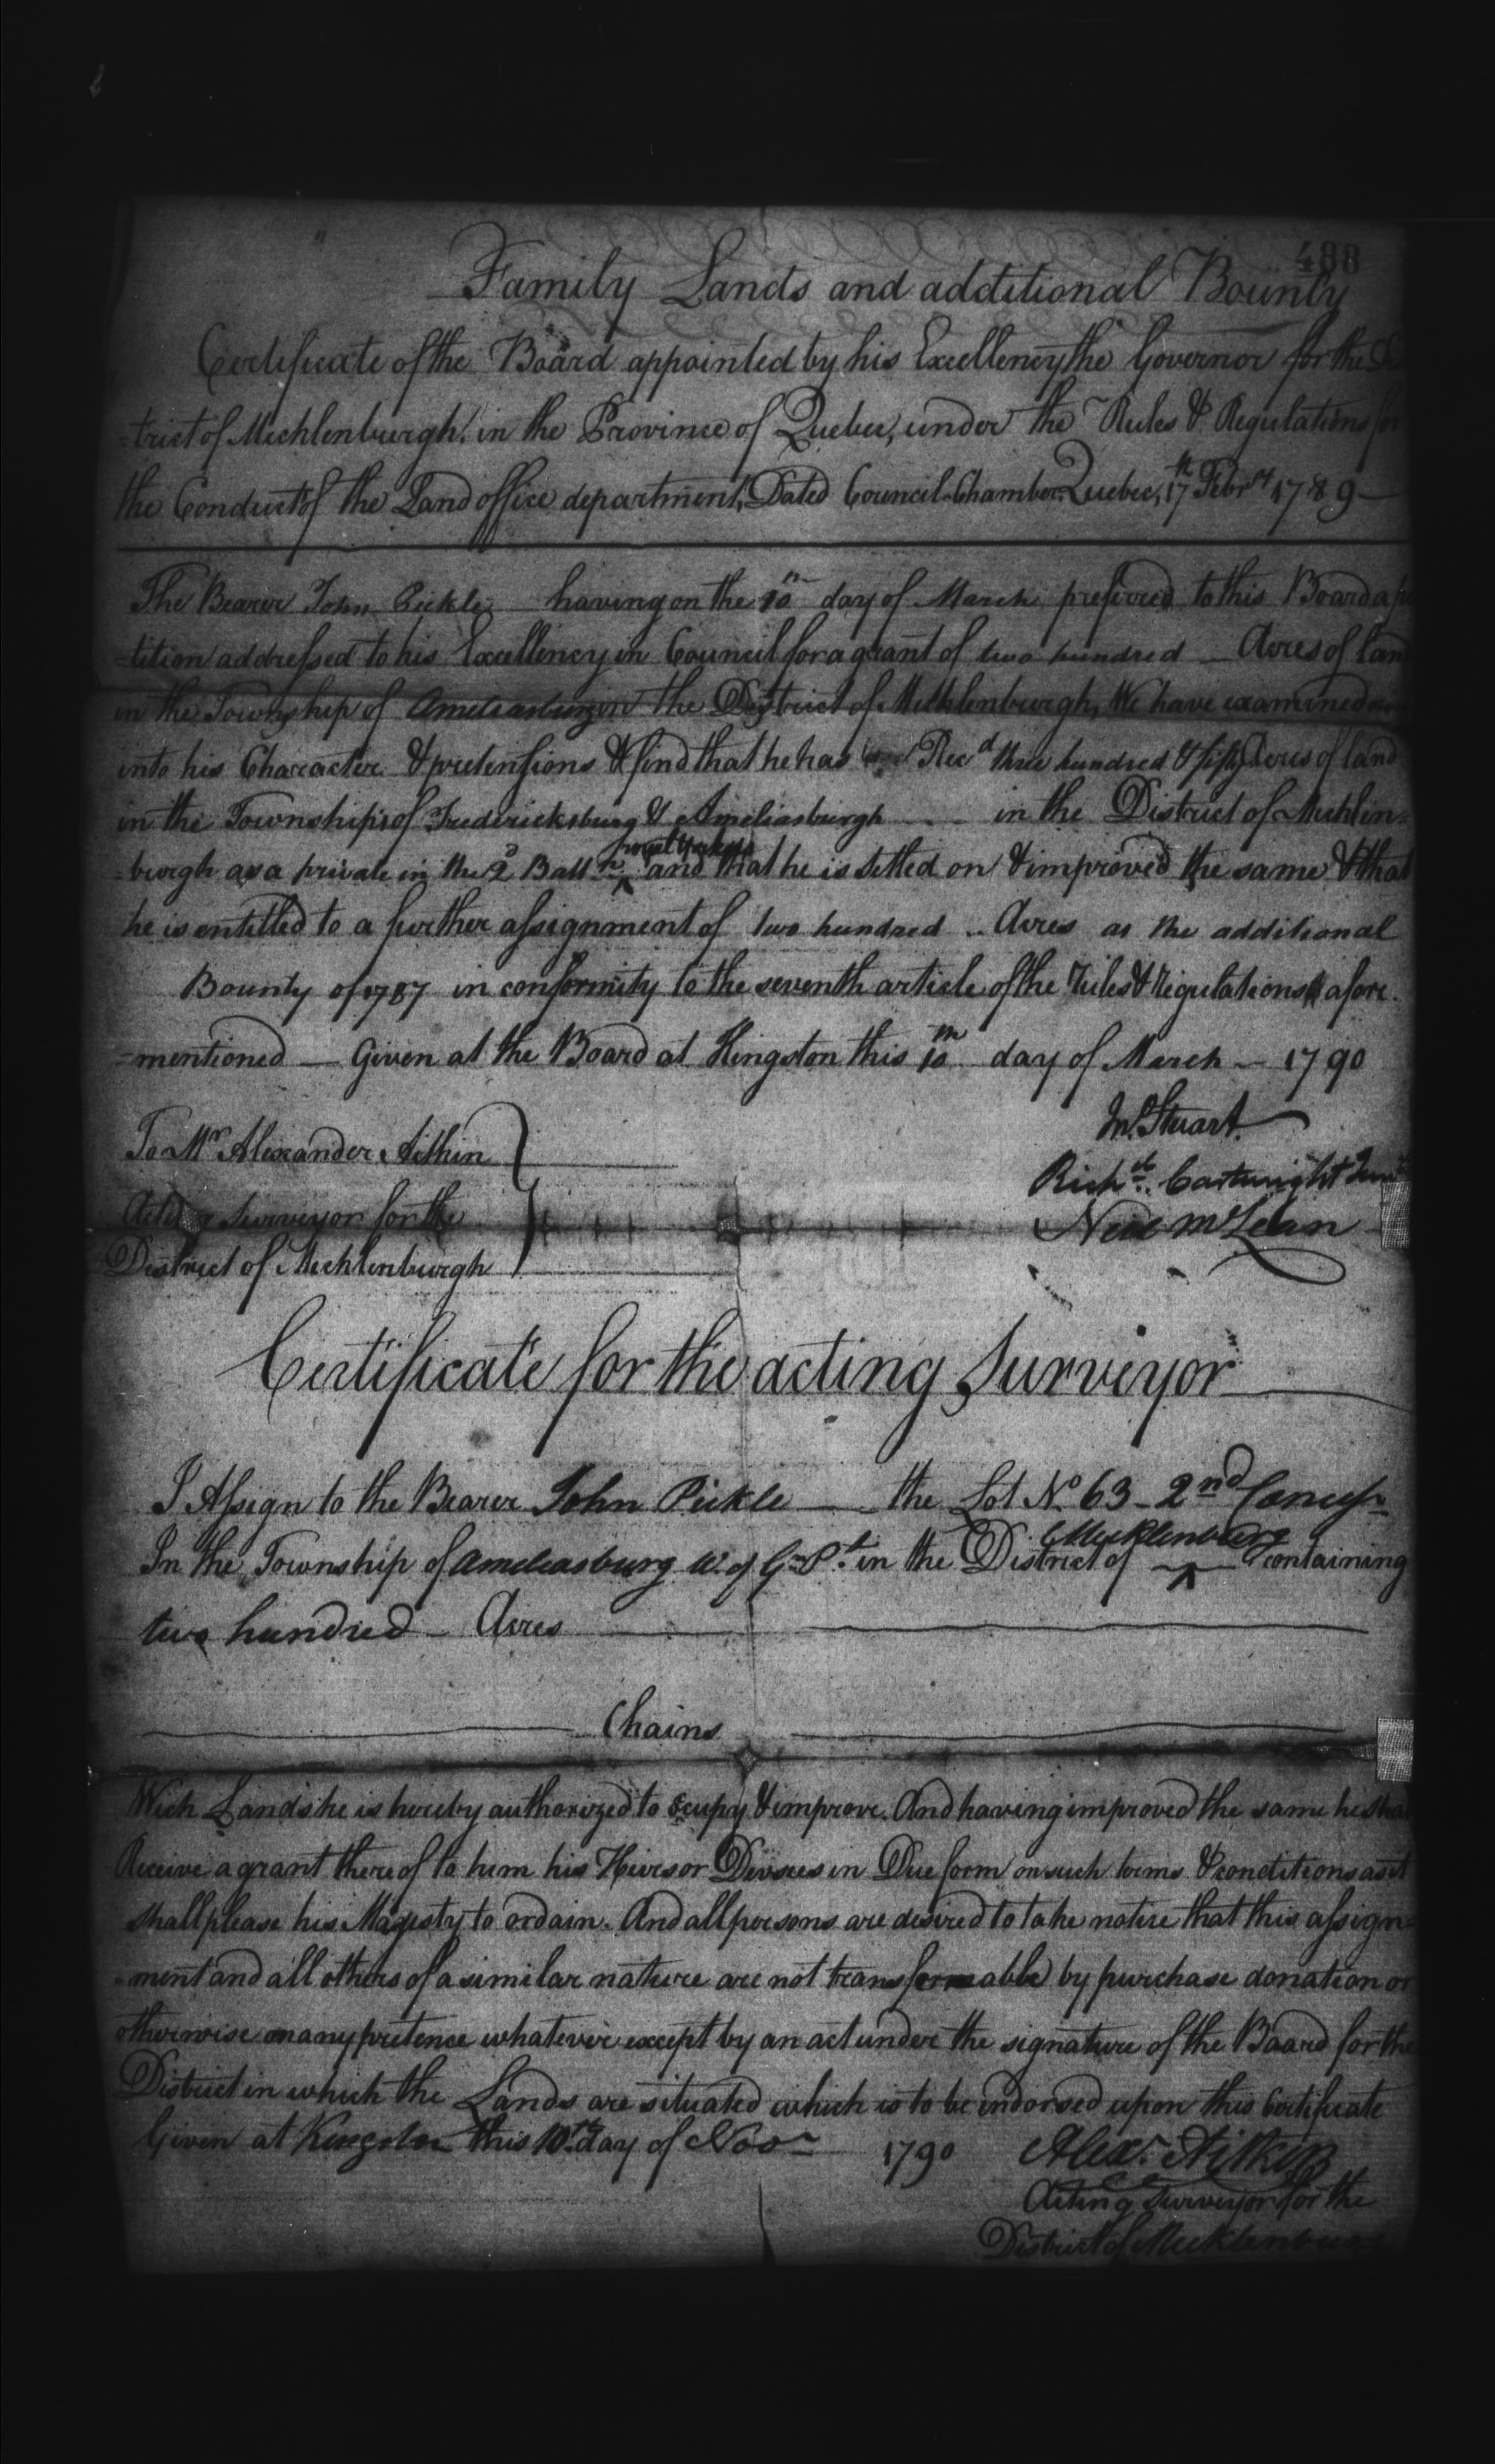 488
Family Lands and additional Bounty
Certificate of the Board appointed by his Excellency the Governor for the
=trict of Mecklenburgh, in the Province of Quebec, under the Rules & Regulations for
the Conduct of the Land office department, Dated Council Chamber Quebec, 17th Febry 1789 —
The Bearer John Pickle — having on the 10th day of March prefered to this Board a pe
=tition addressed to his Excellency in Council for a grant of two hundred — Acres of land
in the Township of Ameliasburg in the District of Mecklenburgh, We have examined
into his Character & pretensions & find that he has Recd three hundred & fifty Acres of land
in the Townships of Fredericksburg & Ameliasburgh — in the District of Mecklen=
royal Yorkers
=burgh as a private in the 2d Battn ^ and that he is Setled on & improved the same & that
he is entitled to a further assignment of two hundred .. Acres as the additional
Bounty of 1787 in conformity to the seventh article of the rules & regulations afore.
=mentioned — Given at the Board at Kingston this 10th day of March — 1790
To Mr Alexander Aitkin
Acting Surveyor for the
District of Mecklenburgh
Jno. Stuart.
Richd. Cartwright Junr
Neil McLean
Certificate for the acting Surveyor
I Assign to the Bearer John Pickle — the Lot No. 63 - 2nd Concess
Mecklenburg
In the Township of Ameliasburg W. of G. Pt. in the District of ^ containing
two hundred — Acres
Chains
Wich Lands he is hereby authorized to ocupy & improve. And having improved the same he shal
Receive a grant there of to him his Heirs or Devsees in Due form on such terms & conditions as it
shall please his Majesty to ordain. And all persons are desired to take notice that this assign=
=ment and all others of a similar nature are not transferrable by purchase donation or
otherwise on any pretence whatever except by an act under the signature of the Board for the
District in which the Lands are situated which is to be indorsed upon this Certificate
Given at Kingston this 10th day of Novr 1790
Alexr. Aitkin
Acting Surveyor for the
District of Mecklenburg